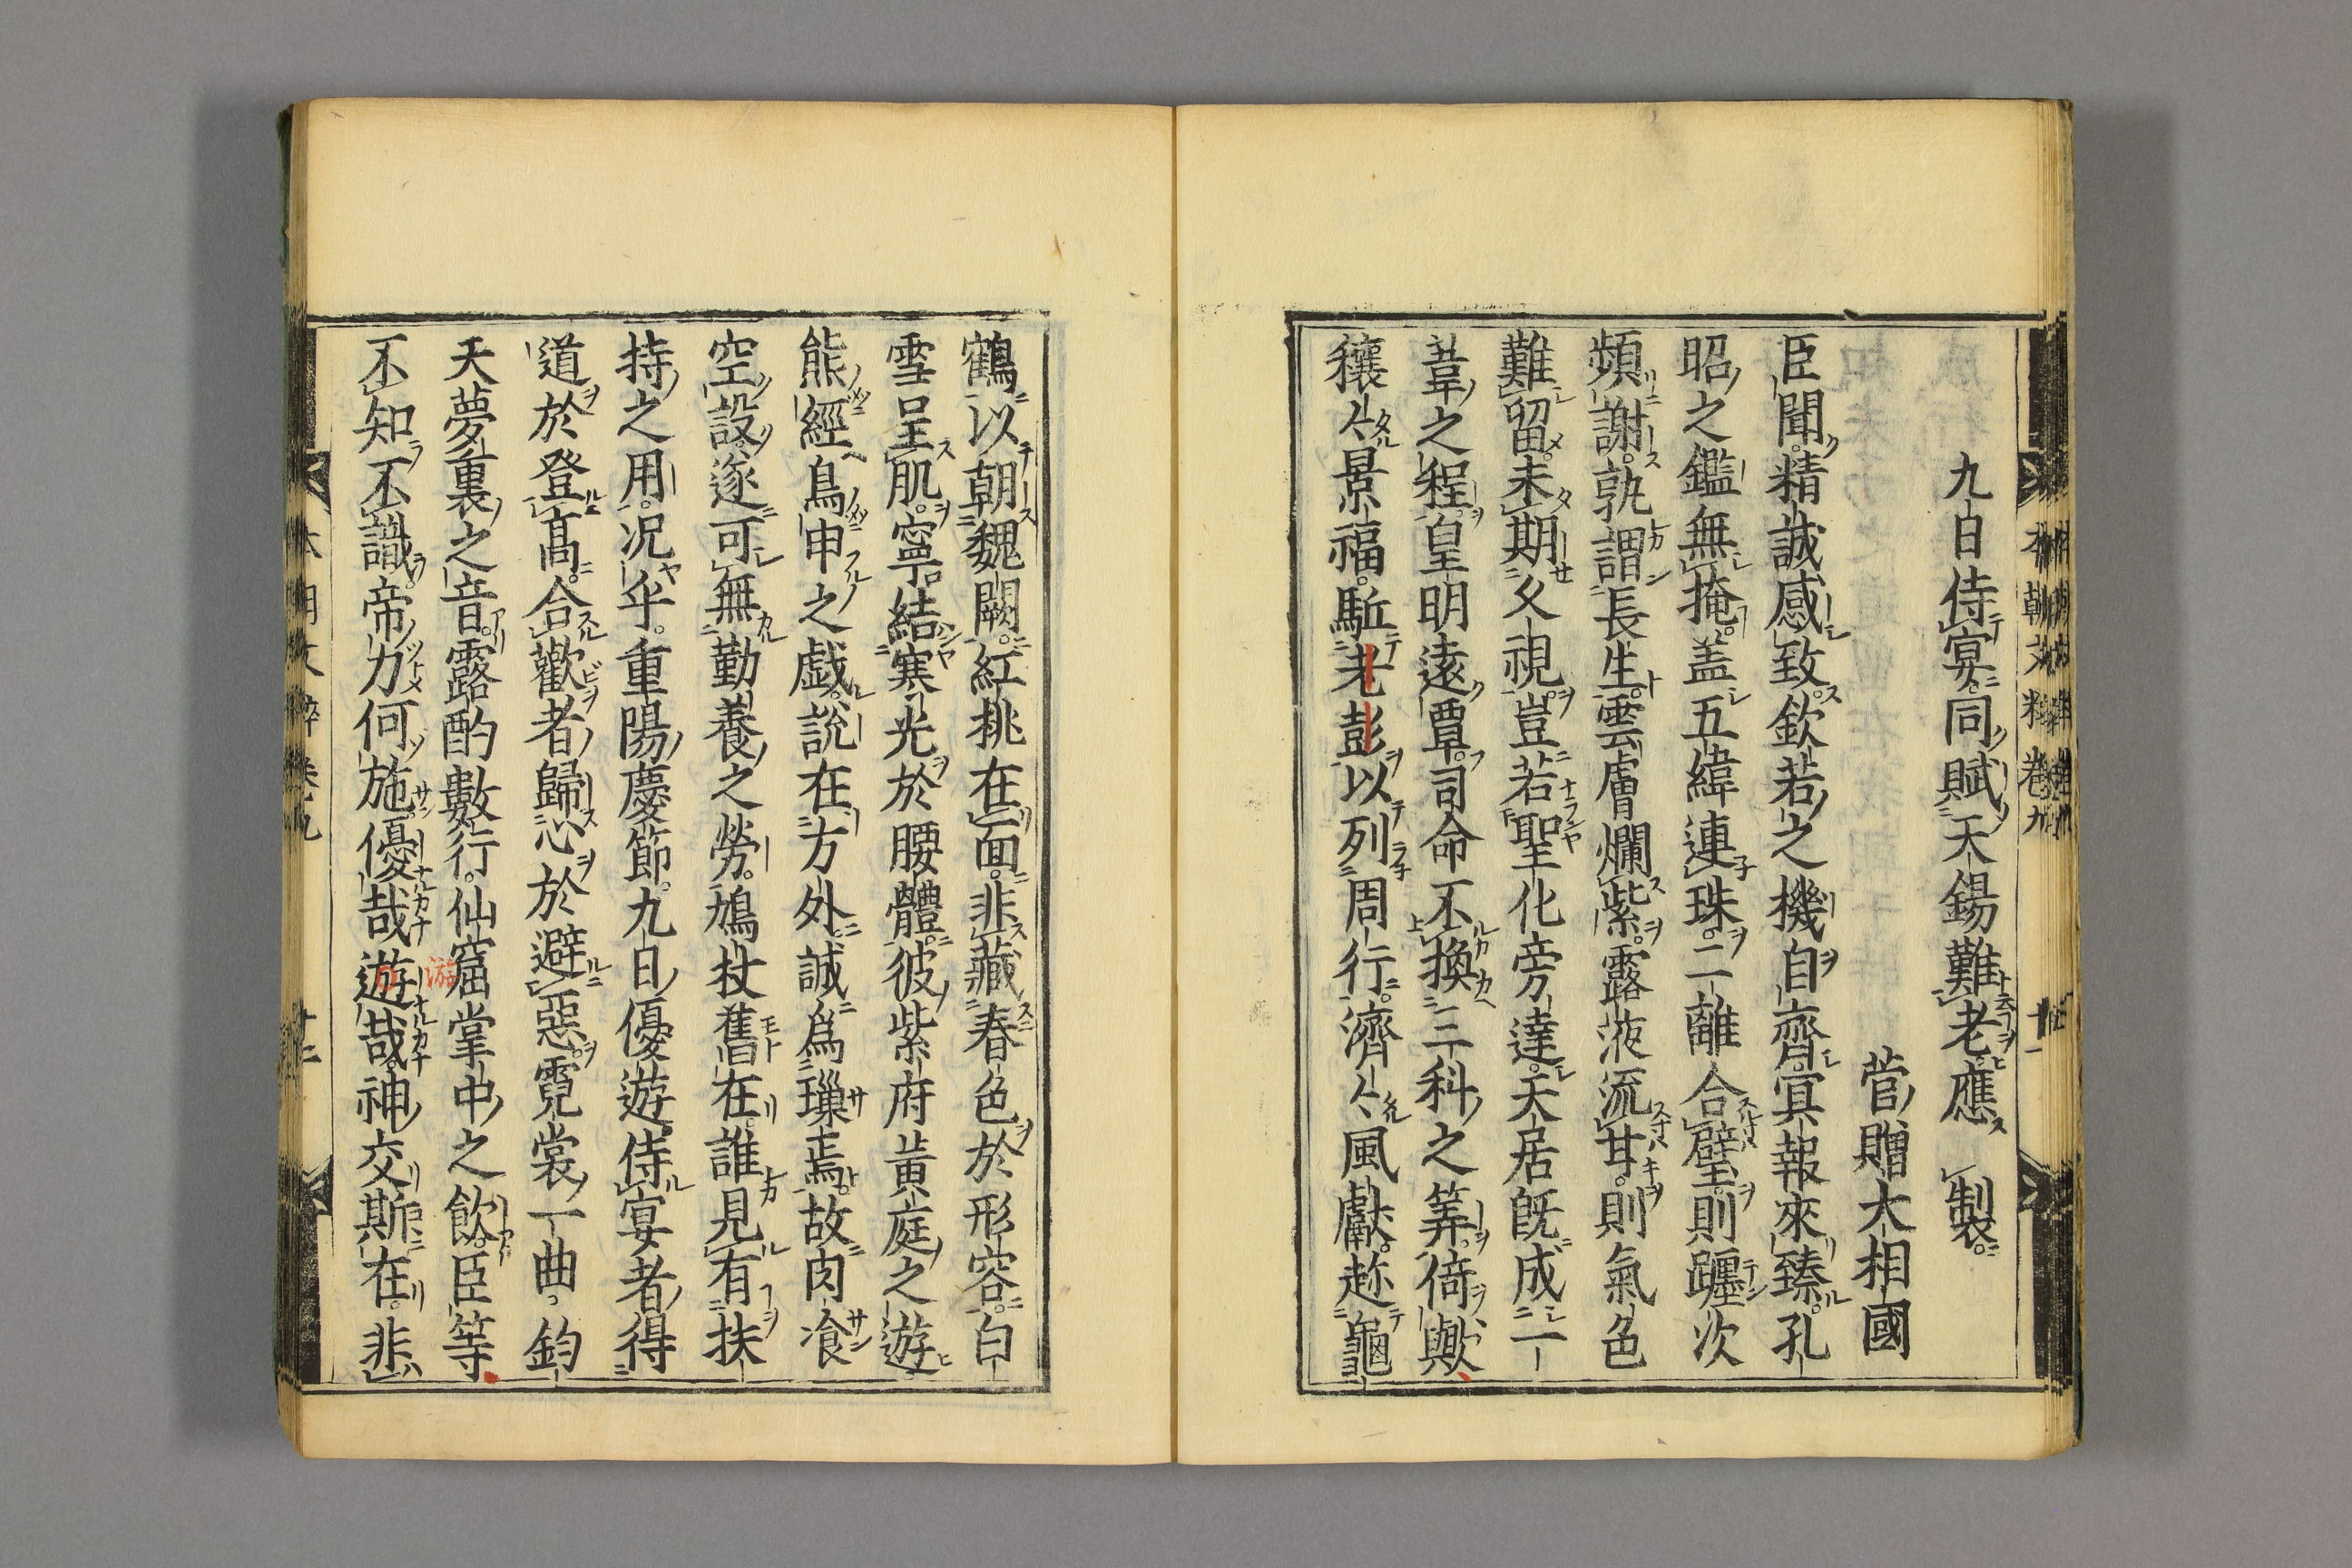 九日侍宴同賦天錫難老應製
菅贈大相國
臣聞精誠感致欽若之機自齊冥報來臻孔
昭之鑑無掩蓋五緯連珠二離合璧則躔次
頻謝孰謂長生雲膚爛紫露液流甘則氣色
難留未期久視豈若聖化旁達天居既成一
葦之程皇明遠覃司命不換三科之筭倚歟
穰々景福駈老彭以列周行濟々風猷趂龜
鶴以朝魏闕紅桃在面非藏春色於形容白
雪呈肌寧結寒光於腰體彼紫府黃庭之遊
熊經鳥申之戯說在方外誠爲璅焉故肉飡
空設遂可無勤養之勞鳩杖舊在誰見有扶
持之用況乎重陽慶節九日優遊侍宴者得
道於登高合歡者歸心於避惡霓裳一曲鈞
天夢裏之音露酌數行仙窟掌中之飲臣等
不知不識帝力何施優哉遊哉神交斯在非
游
本朝文粹卷九
十一
本朝文粹卷九
十二